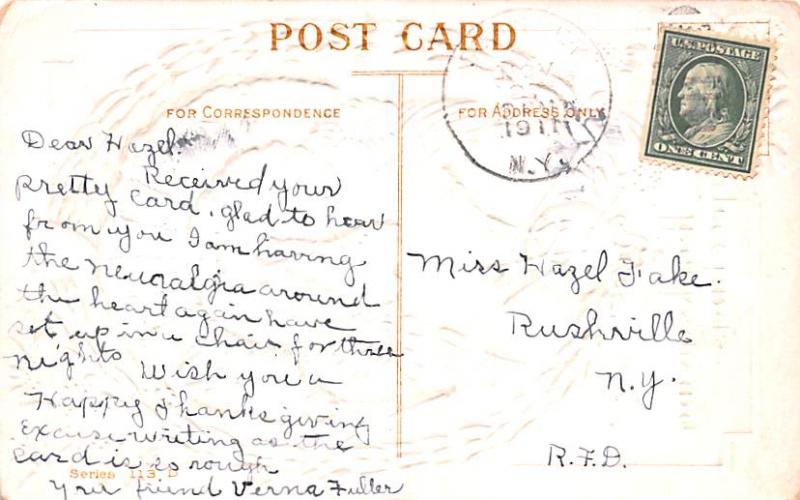 POST CARD
FOR CORRESPONDENCE
FOR ADDRESS ONLY
U.S. POSTAGE
ONE CENT
1911
N.Y.
Dear Hazel.
Received your
pretty card, glad to hear
from you I am having
the neuralgia around
the heart again have
set up in a chair for three
nights Wish you a
Happy Thanksgiving
Excuse writing as the
card is so rough
Your friend Verna Fuller
Series 113 D
Miss Hazel Fake.
Rushville
N.Y.
R.F.D.